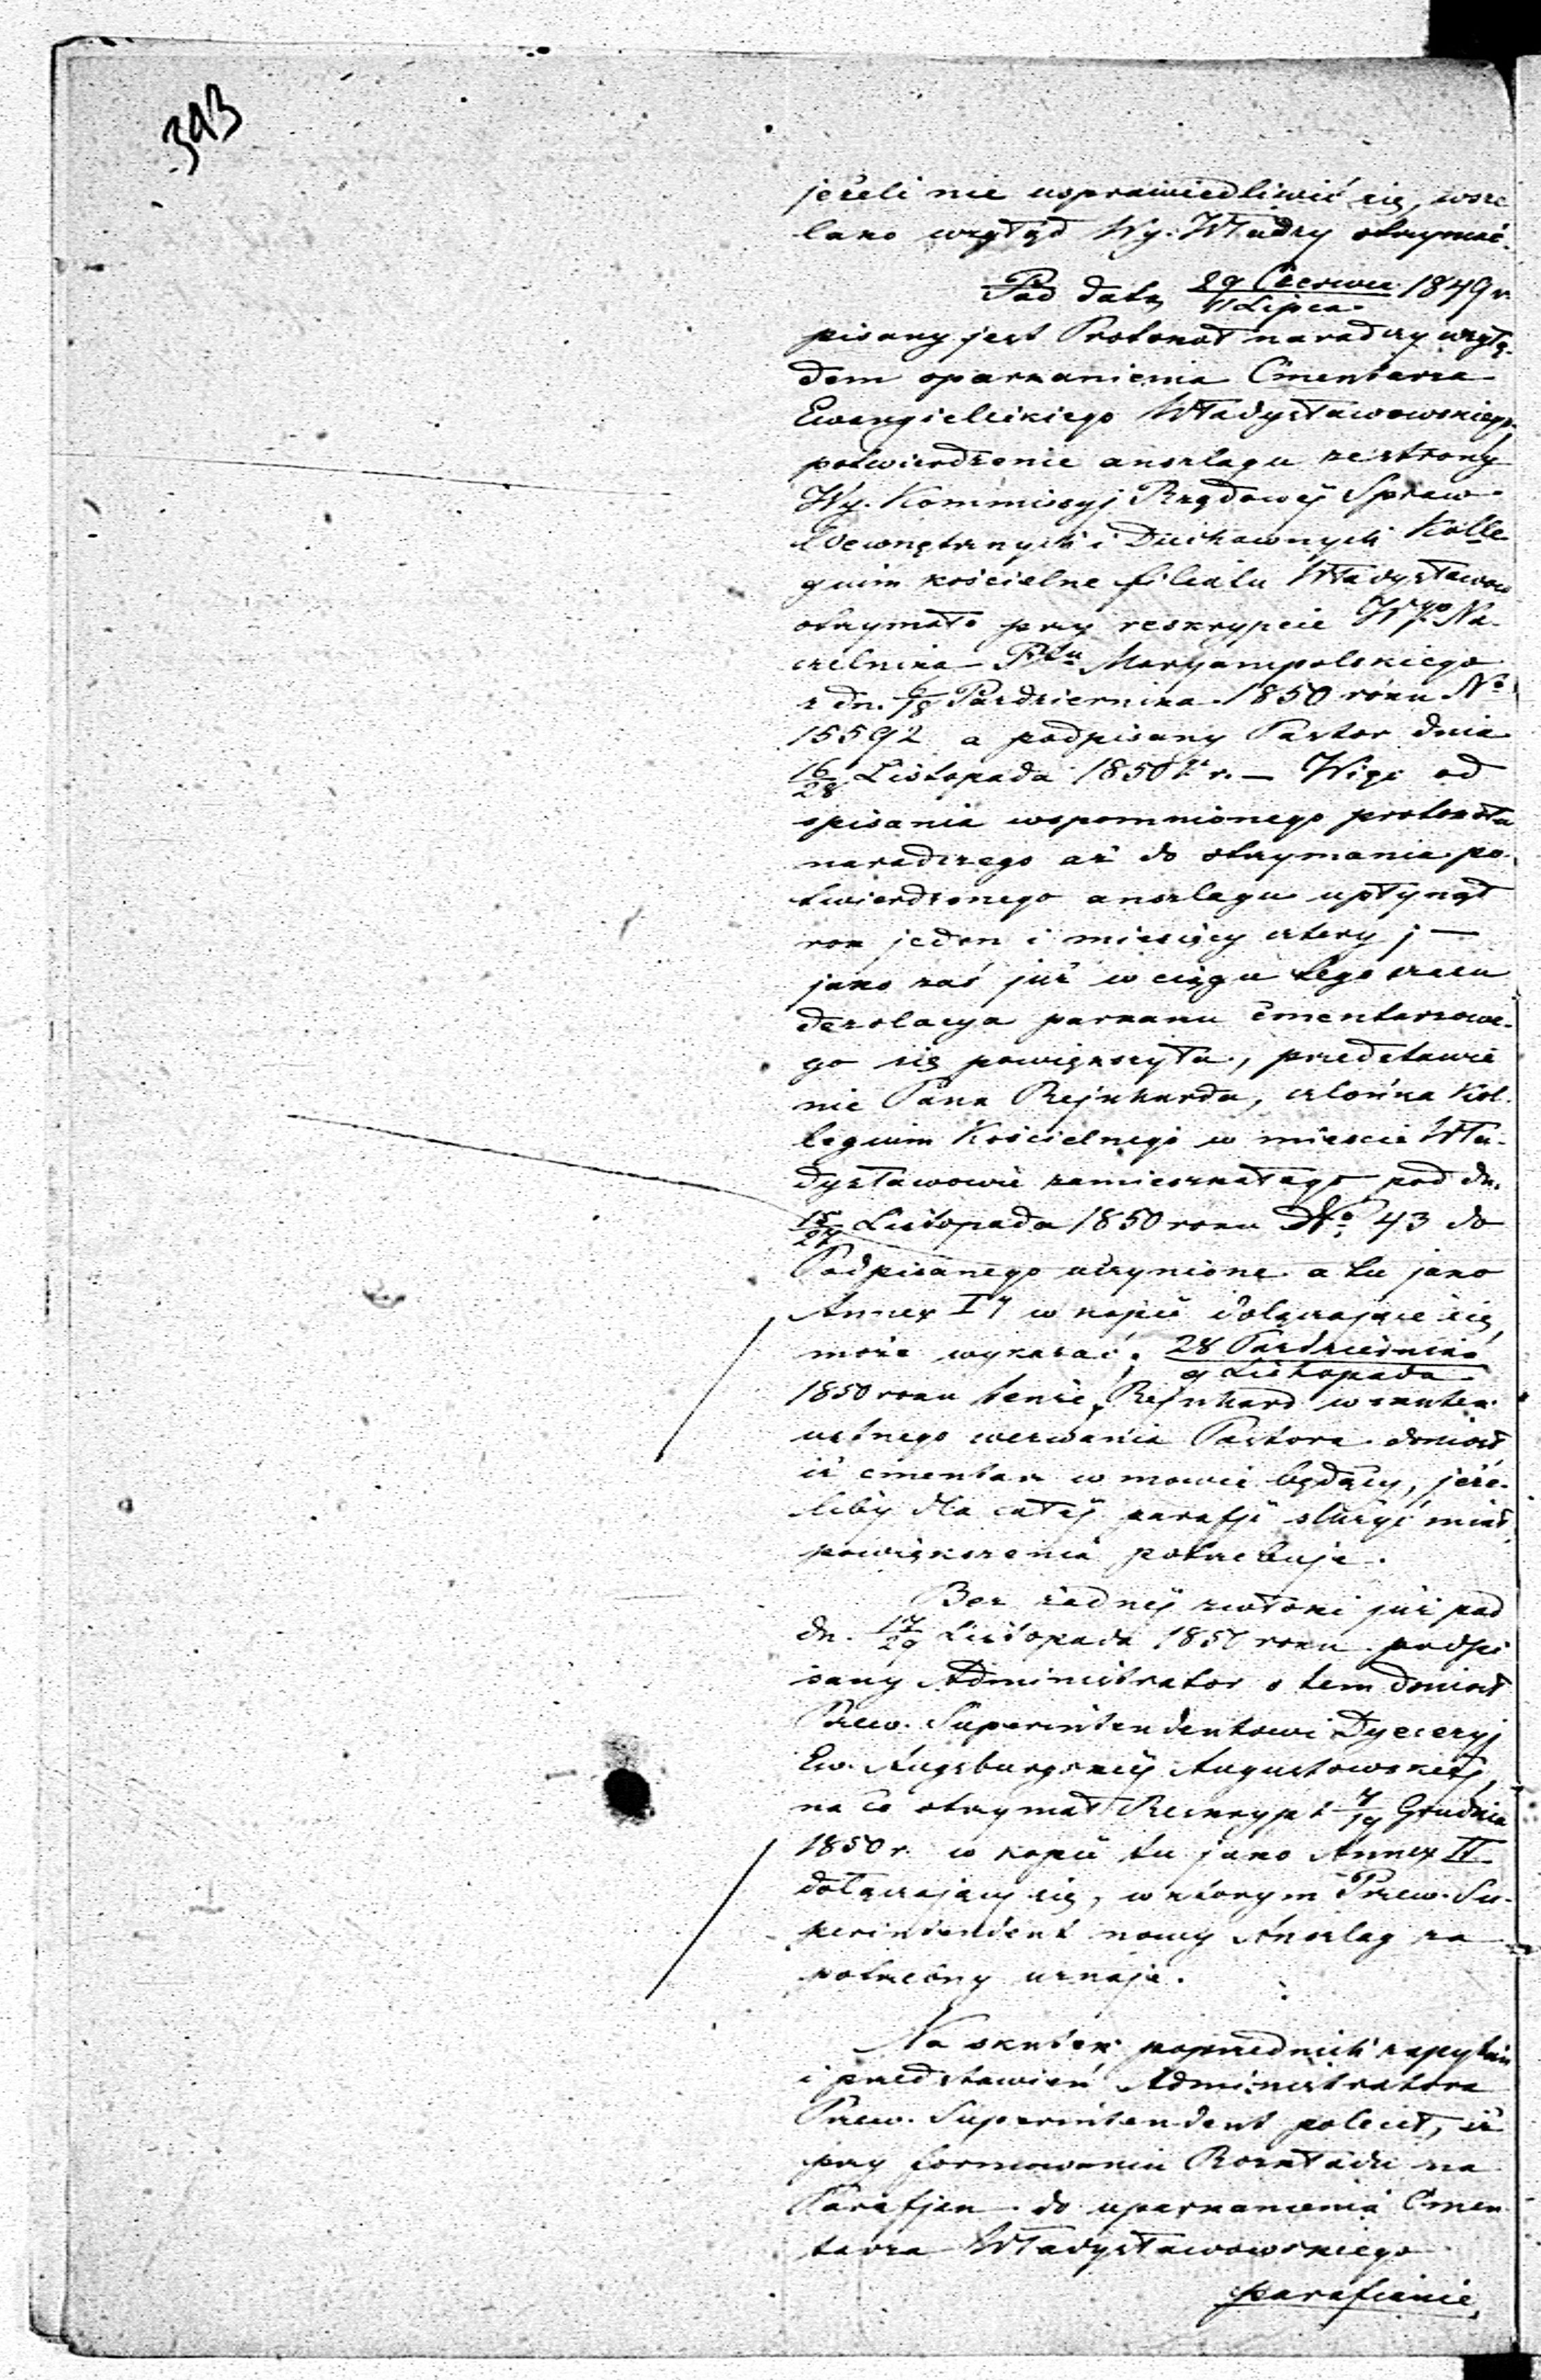 393
jeżeli nie usprawiedliwić się, wsze
lako wzgląd Wy. Władzy otrzymać.
Pod datą 29 Czerwca/11 Lipca 1849 r.
pisany jest Protokoł naradczy wzglę-
dem oparkanienia Cmentarza
Ewangielickiego Władysławowskiego,
potwierdzenie anszlagu ze strony
Wy. Kommissyj Rządowéj Spraw
Wewnętrznych i Duchownych Kolle
gium kościelne filiału Władysławow
otrzymało przy reskrypcie Wgo Na-
czelnika Ptu Maryampolskiego
z dn. 6/18 Pazdziernika 1850 roku No
15592 a podpisany Pastor dnia
16/28 Listopada 1850 r. — Więc od
spisania wspomnionego protokołu
naradczego aż do otrzymania po-
twierdzonego anszlagu upłynął
rok jeden i miesięcy cztery; —
jako zaś już w ciągu tego czasu
dezolacya parkanu cmentarzowe-
go się powiększyła, przedstawie
nie Pana Rejnharda, członka Kol-
legium Kościelnego w mieście Wła-
dysławowie zamieszkałego pod dn.
15/27 Listopada 1850 roku No 43 do
Podpisanego uczynione a tu jako
Annex I w kopii dołączające się
może wykazać; 28 Pazdziernika/9 Listopada
1850 roku tenże Rejnhard w skutek
ustnego wezwania Pastora doniosł
iż cmentarz w mowie będący, jeże-
liby dla całéj parafji służyć miał
powiększenia potrzebuje.
Bez żadnéj zwłoki już pod
dn. 17/29 Listopada 1850 roku podpi
sany Administrator o tem doniosł
Przew. Superintendentowi Dyecezyj
Ew. Augsburgskiéj Augustowskiéj,
na co otrzymał Reskrypt 7/19 Grudnia
1850 r. w kopii tu jako Annex II
dołączający się, w którym Przew. Su-
perintendent nowy Anszlag za
potrzebny uznaje.
Na skutek poprzednich zapytań
i przedstawień Administratora
Przew. Superintendent polecił, iż
przy formowaniu Rozkładu na
Parafjan do uparkanienia Cmen
tarza Władysławowskiego
parafianie,